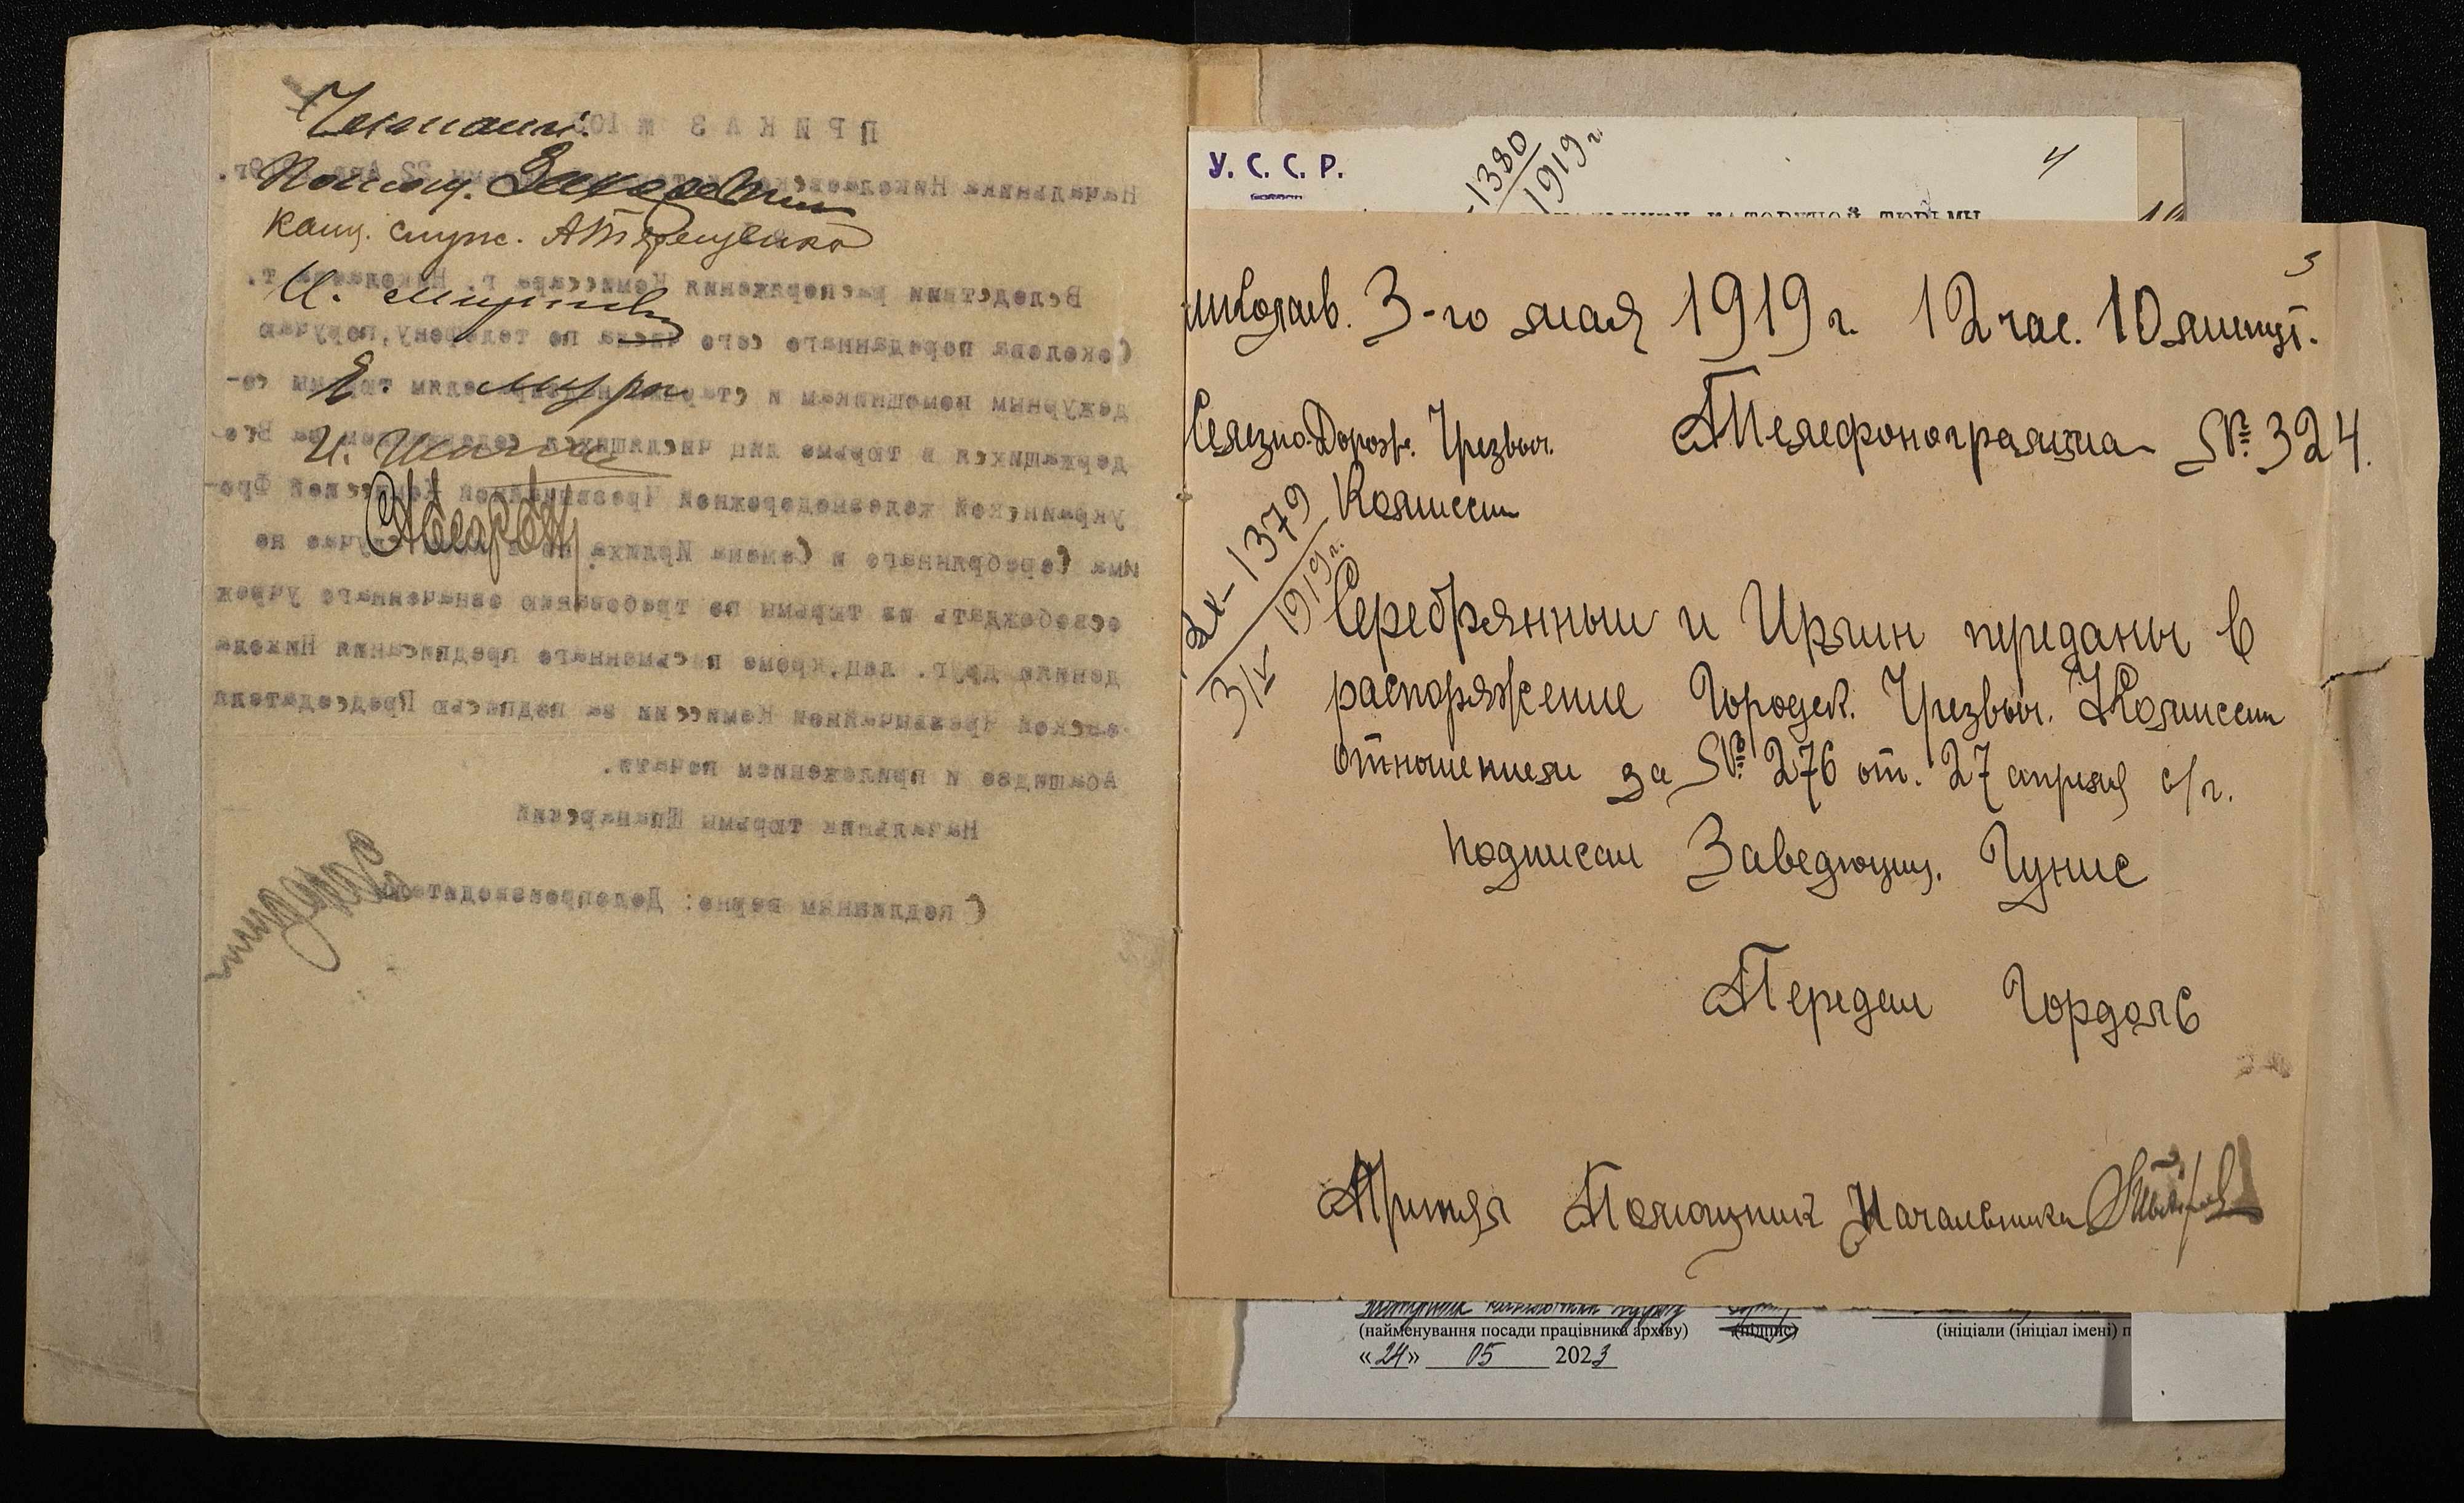 Читали:
Помощ.
Канц. служ. А Терещенко
И.
Е.
И.
ПРИКАЗ № 10
Начальника Николаевской
Вследствии распоряжения Комиссара г. Николаева т.
Соколова переданнаго сего числа по телефону, поручаю
дежурным помощникам и старшим надзирателям тюрьмы со-
держащихся в тюрьме лиц числящихся за Все-
украинской железнодорожной Чрезвычайной Комиссией Фро-
има Серебрянаго и Семена Ирлина, ни в коем случае не
освобождать из тюрьмы по требованию означеннаго учреж
дения друг. лец, кроме письменнаго предписания Никола
евской Чрезвычайной Комиссии за подписью Председателя
Абашидзе и приложением печати.
Начальник тюрьмы
С подлинным верно: Делопроизводитель
У. С. С. Р.
1380
1919 г
4
КАТОРЖНОЙ ТЮРЬМЫ
3
Николаев. 3-го мая 1919 г. 12 час. 10 минут.
Железно-Дорож. Чрезвыч. Телефонограмма № 324.
Комиссии
Вх-1379
3/V 1919 г.
Серебрянный и Ирлин переданы в
распоряжение Городск. Чрезвыч. Комиссии
отношением за № 276 от. 27 апреля с/г.
подписал Заведующ. Гунис
Передал Гордон
Принял Помощник Начальника
(найменування посади працівника архіву) (підпис) (ініціали (ініціал імені) п
«24» 05 2023